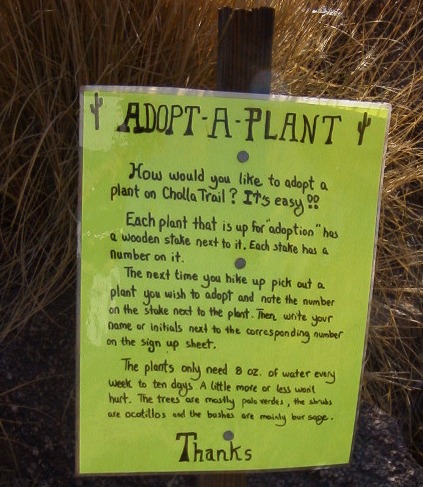 ADOPT-A-PLANT
How would you like to adopt a
plant on Cholla Trail? It's easy!!
Each plant that is up for "adoption" has
a wooden stake next to it. Each stake has a
number on it.
The next time you hike up pick out a
plant you wish to adopt and note the number
on the stake next to the plant. Then write your
name or initials next to the corresponding number
on the sign up sheet.
The plants only need 8 oz. of water every
week to ten days. A little more or less won't
hurt. The trees are mostly palo verdes, the shrubs
are ocotillos and the bushes are mainly bur sage.
Thanks